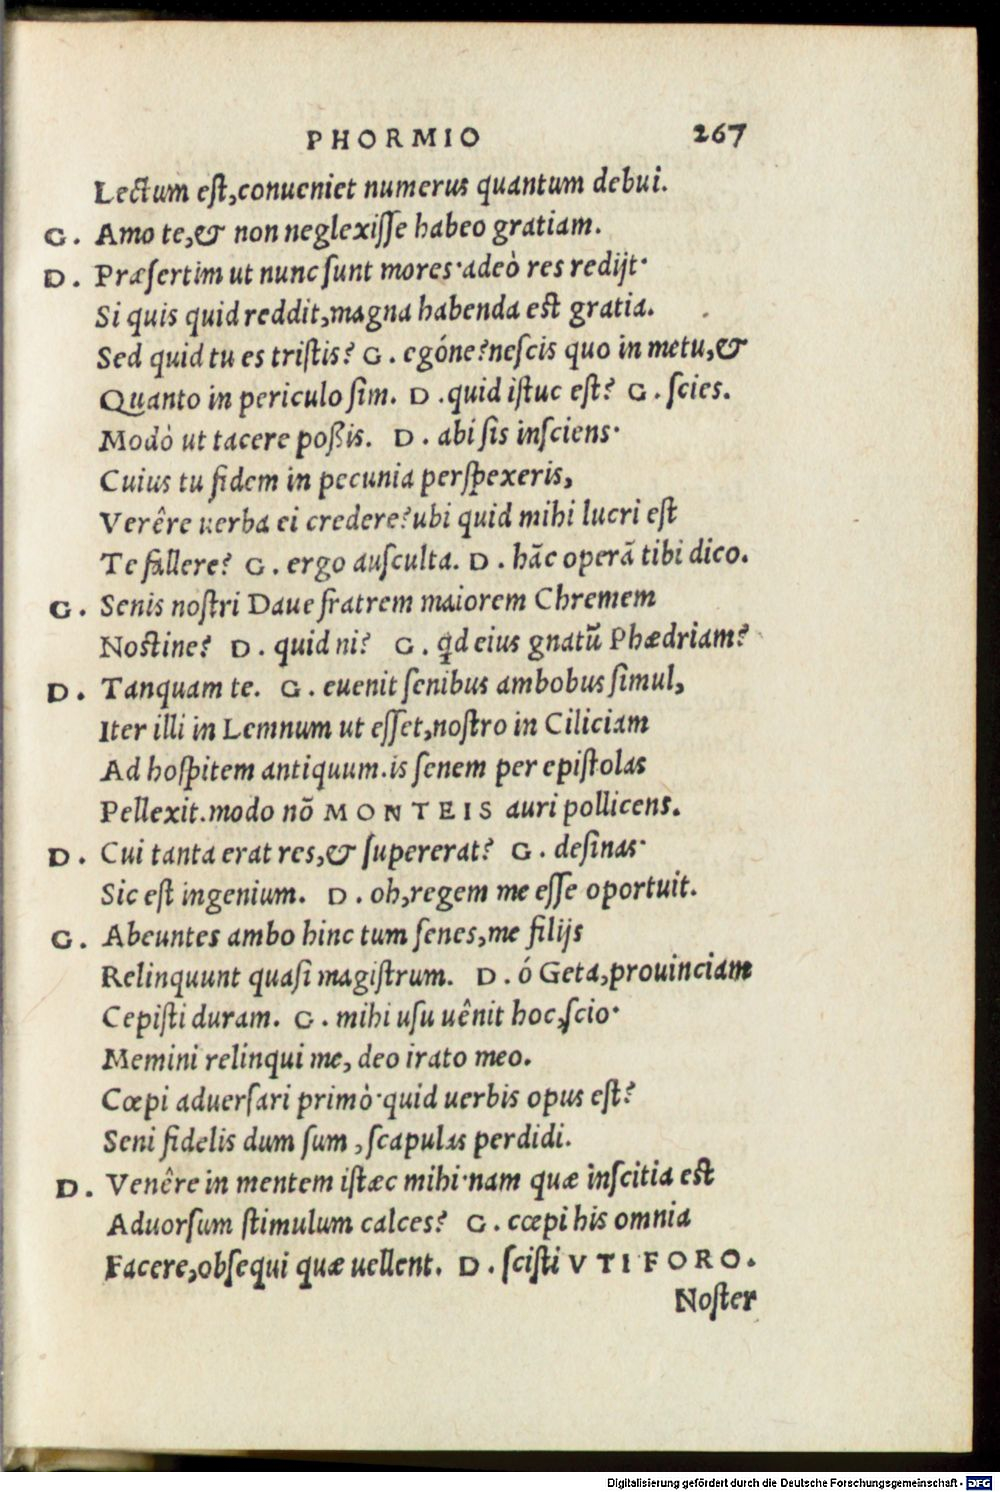 PHORMIO 267
Lectum eſt,conueniet numerus quantum debui.
G. Amo te,& non neglexiſſe habeo gratiam.
D. Præſertim ut nunc ſunt mores·adeò res redijt·
Si quis quid reddit,magna habenda est gratia.
Sed quid tu es triſtis? G. egóne?neſcis quo in metu,&
Quanto in periculo ſim. D. quid iſtuc eſt? G. ſcies.
Modò ut tacere poßis. D. abi ſis inſciens·
Cuius tu fidem in pecunia perſpexeris,
Verêre uerba ei credere?ubi quid mihi lucri eſt
Te fallere? G. ergo auſculta. D. hāc operā tibi dico.
G. Senis noſtri Daue fratrem maiorem Chremem
Nostine? D. quid ni? G. qd eius gnatū Phædriam?
D. Tanquam te. G. euenit ſenibus ambobus ſimul,
Iter illi in Lemnum ut eſſet,noſtro in Ciliciam
Ad hoſpitem antiquum.is ſenem per epiſtolas
Pellexit.modo nō MONTEIS auri pollicens.
D. Cui tanta erat res,& ſupererat? G. deſinas·
Sic eſt ingenium. D. oh,regem me eſſe oportuit.
G. Abeuntes ambo hinc tum ſenes,me filijs
Relinquunt quaſi magiſtrum. D. ó Geta,prouinciam
Cepiſti duram. G. mihi uſu uênit hoc,ſcio·
Memini relinqui me, deo irato meo.
Cœpi aduerſari primò·quid uerbis opus eſt?
Seni fidelis dum ſum ,ſcapulas perdidi.
D. Venêre in mentem iſtæc mihi·nam quæ inſcitia est
Aduorſum ſtimulum calces? G. cœpi his omnia
Facere,obſequi quæ uellent. D. ſciſti VTI FORO.
Noſter
Digitalisierung gefördert durch die Deutsche Forschungsgemeinschaft - DFG